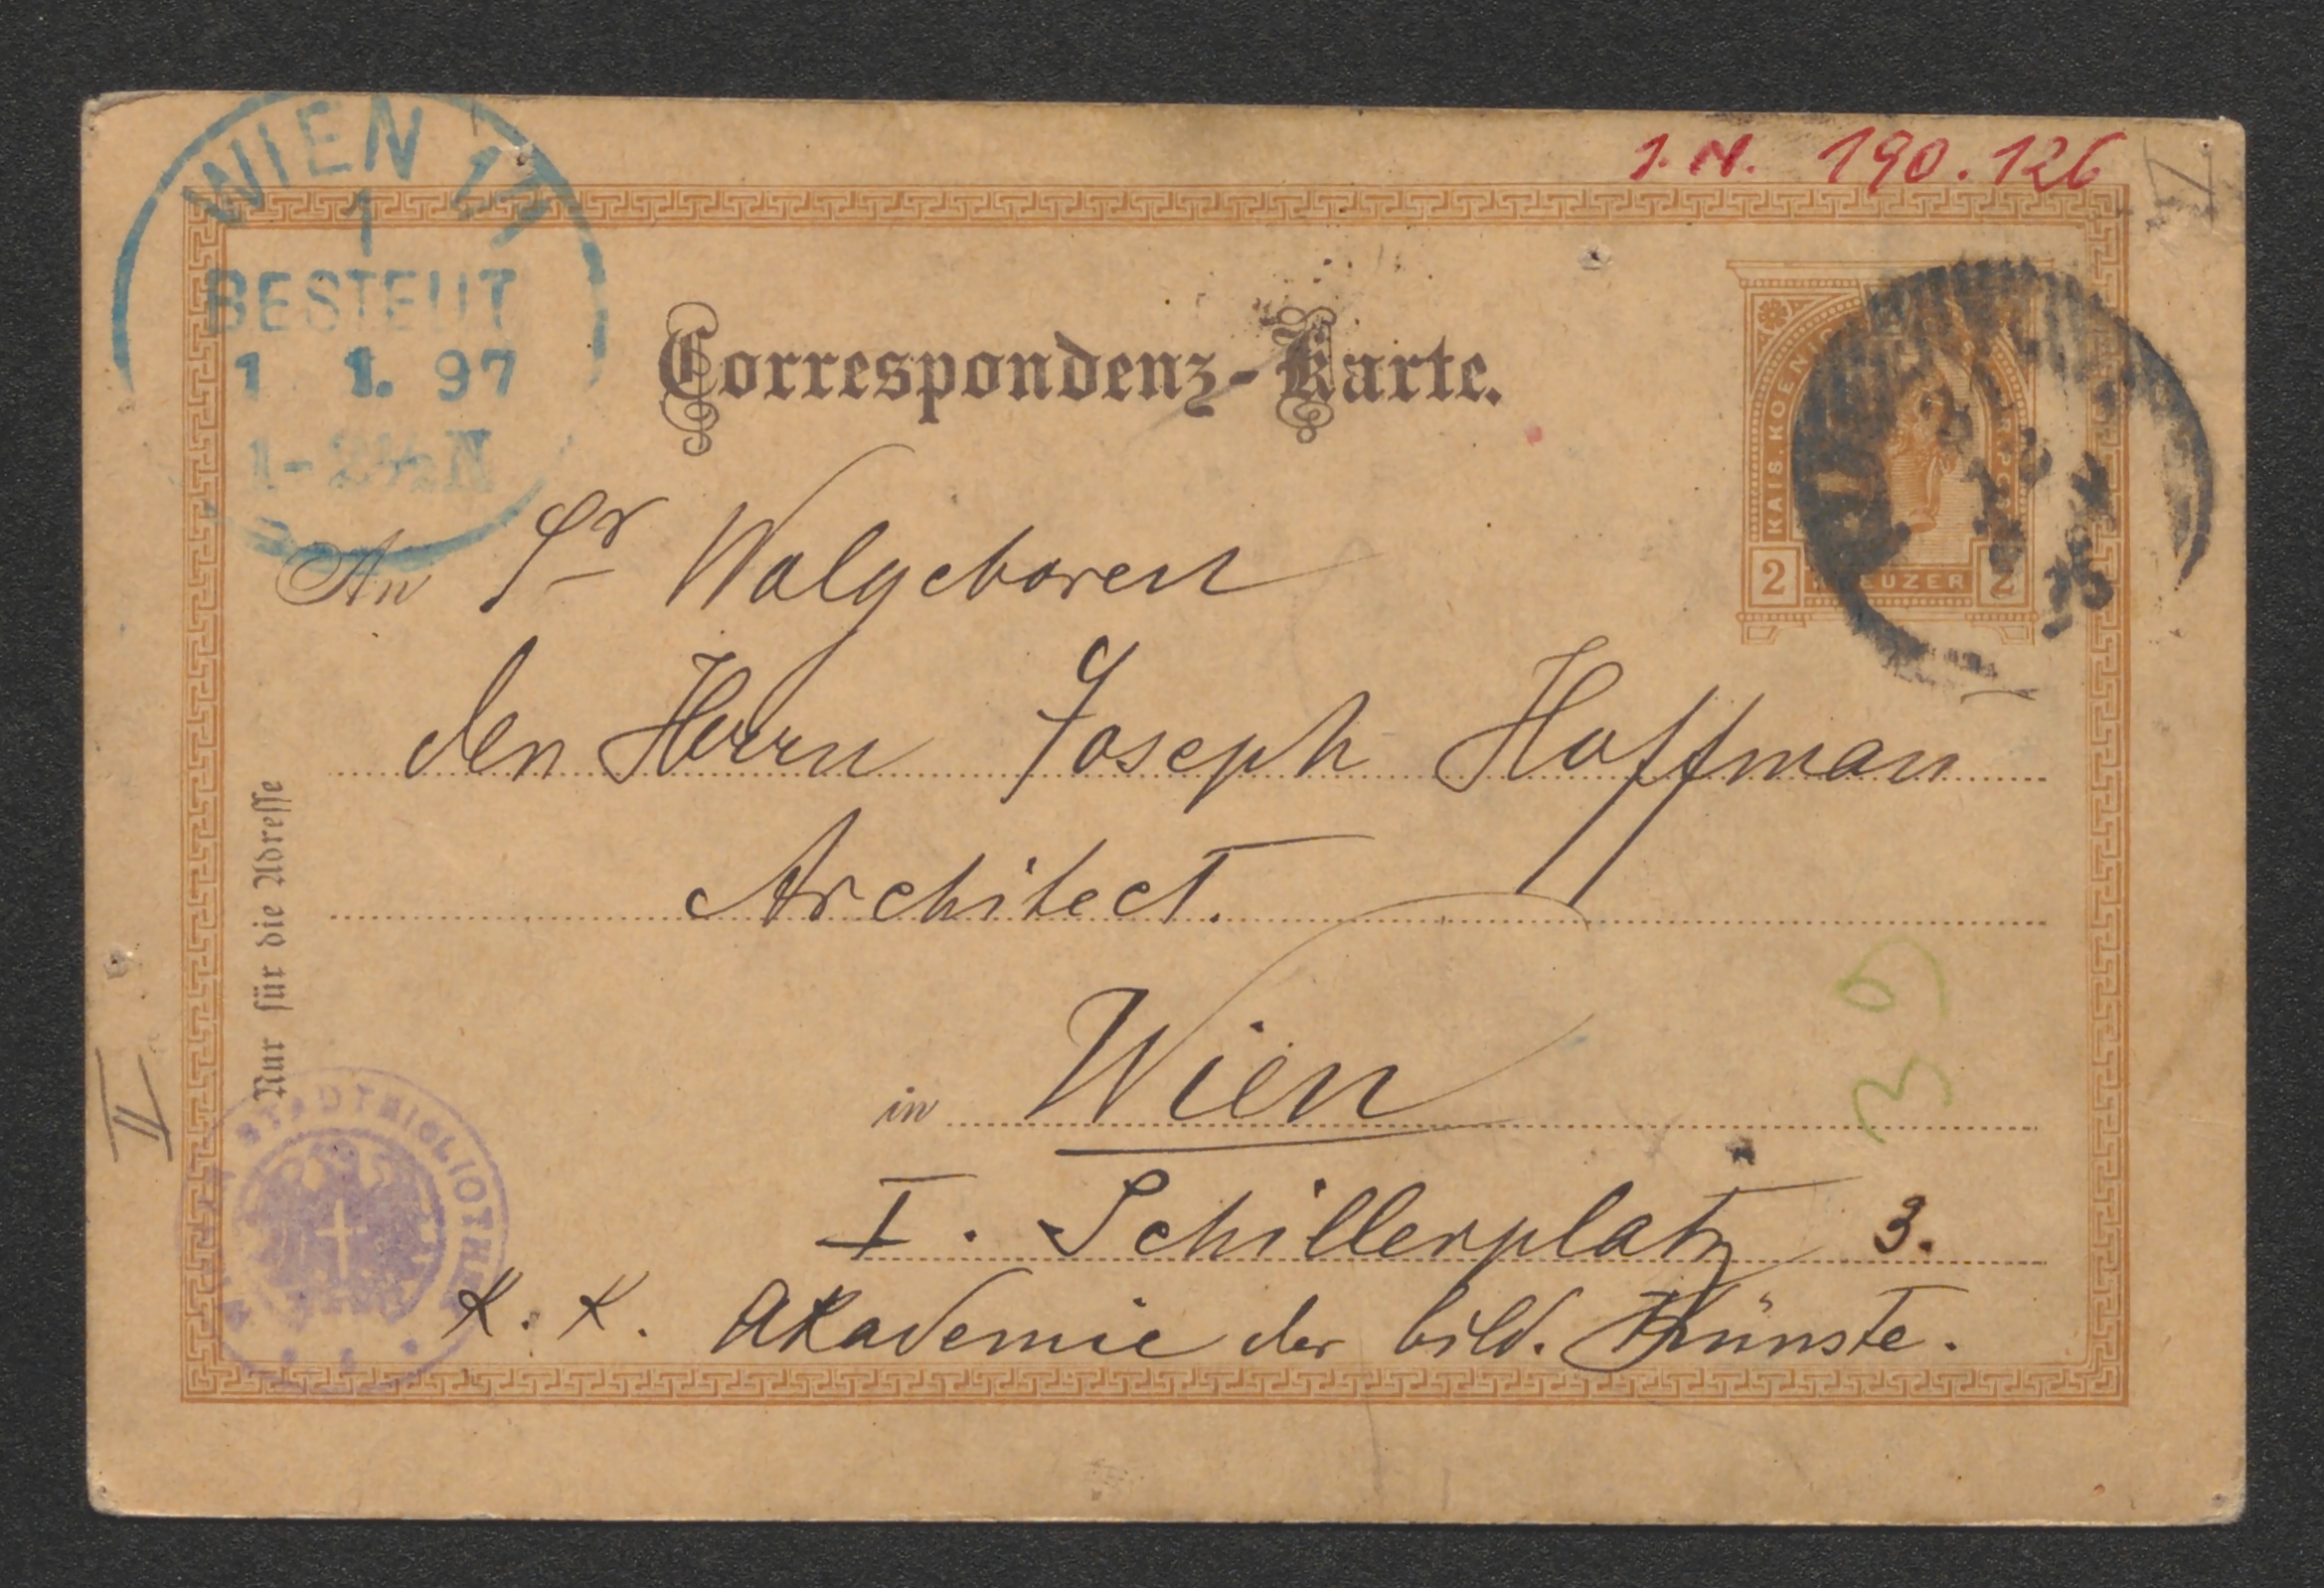 J. N. 190.126
WIEN 1/1
1
BESTELLT
1 1. 97
1-2½N
Correspondenz-Karte.
KAIS. KOENIG
2 KREUZER 2
An Sr Wolgeboren
den Herrn Joseph Hoffman̄
Architect.
in Wien
I. Schillerplatz 3.
K. K. Akademie der bild. Künste.
Nur für die Adresse
STADTBIBLIOTHEK
II
39